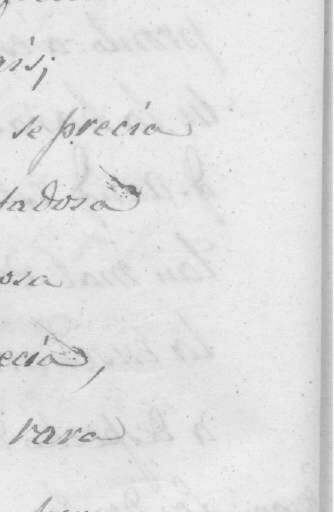 ais;
se precia
tadosa
osa
ecia,
rara